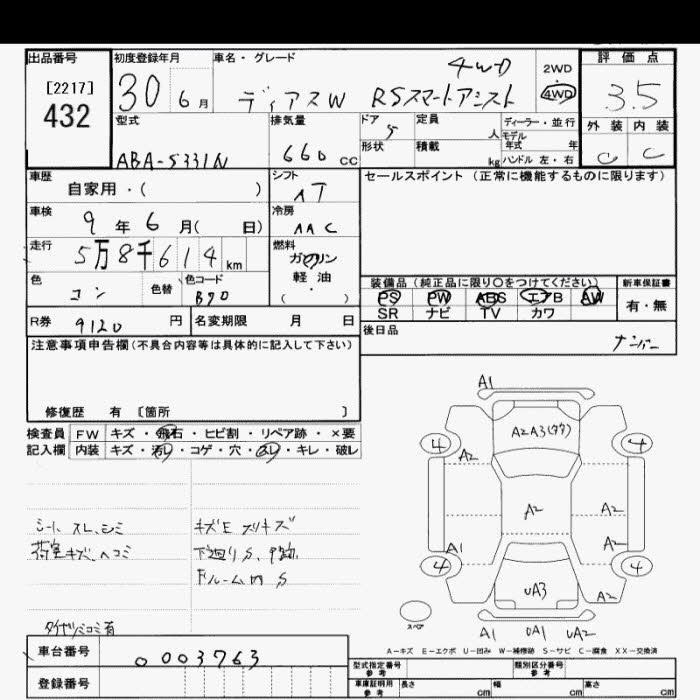 出品番号
[2217]
432
初度登録年月
30 6 月
車名・グレード
4WD
ディアスW RSスマートアシスト
2WD
4WD
評価点
3.5
外装 内装
C C
型式
ABA-S331N
排気量
660 cc
ドア
5
定員
人
ディーラー・並行
モデル
年式 年
形状
積載
kg
ハンドル 左・右
車歴
自家用・( )
シフト
AT
セールスポイント (正常に機能するものに限ります)
車検
9 年 6 月( 日)
冷房
AAC
走行
5万8千614 km
燃料
ガソリン
軽油
・
( )
色
コン
色替
色コード
B70
装備品 (純正品に限り○をつけてください)
PS PW ABS エアB AW
SR ナビ TV カワ
新車保証書
有・無
R券 9120 円
名変期限 月 日
後日品
ナンバー
注意事項申告欄(不具合内容等は具体的に記入して下さい)
修復歴 有 [箇所 ]
検査員
記入欄
FW キズ・飛石・ヒビ割・リペア跡・×要
内装 キズ・汚レ・コゲ・穴・スレ・キレ・破レ
シート スレ、シミ
荷室キズ、ヘコミ
キズE スリキズ
下廻りS、
Fルーム内S
タイヤツミコミ有
A1
A2A3(
4 4
A2
A2
A2
A1
A2
4 4
UA3
A2
スペア
A1 UA1 UA2
A-キズ E-エクボ U-凹み W-補修跡 S-サビ C-腐食 XX-交換済
車台番号 0003763
登録番号
型式指定番号
参考
類別区分番号
参考
車庫証明用
参考
長さ cm
幅 cm
高さ cm